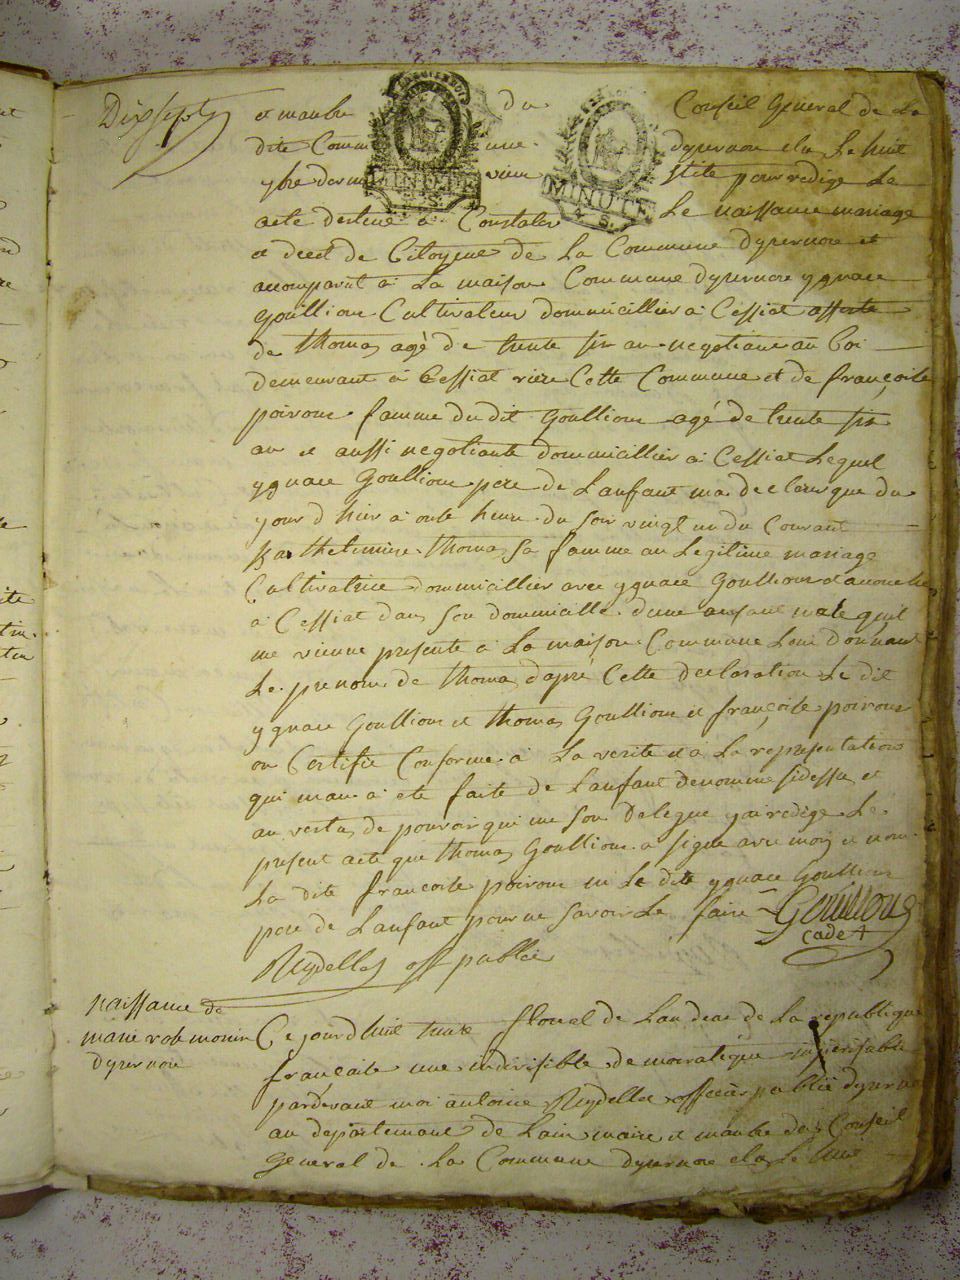 Dixsept
et manbre du Conseil General de La
dite Commune dyzernore elu Le huit
pour redige Le
acte destine a Constater Le naissance mariage
et deces de Citoyens de La Commune dyzernore et
accomparut a La maison Commune dyzernore ygnace
Gouillion Cultivateur dommicillier a Cessiat assiste
de thomas agé de trente six an negotiant au Boi
demeurant a Cessiat riere Cette Commune et de françoise
poiroux famme du dit Goullion agé de trente six
an et aussi negotiante dommicillier a Cessiat Lequel
ygnace Goullion pere de Lanfant ma declares que du
your d hier a onte heure du Soir vingt un du Courant
Barthelemine thomas Sa famme an Legitime mariage
Cultivatrice dommicillier avec ygnace Goullion et acouche
a Cessiat dans Son dommicille dune anfant male quil
me vienne presente a La maison Commune Lui donnant
Le prenom de thomas dapré Cette declaration Le dit
ygnace Goullion et thomas Goullion et françoise poiroux
on Certifie Conforme a La verite et a La representation
qui man a eté faite de Lanfant denomme sidessu et
an vertu de pouvoir qui me Son Delegue yai redige Le
present acte que thomas Goullion a signe avec moi et non
La dite françoise poiroux ni Le dite ygnace Goullion
pere de Lanfant pour ne Savoir Le faire Gouilloud
cadet
Nydellet off public
naissance de
marie rose monin
dyzernore
Ce jourdhuit trente floreal de Lan deux de La republique
française une indivisible democratique imperissable
pardevant moi antoine Nydellet officier public dyzernore
au departemant de Lain maire et manbre du Conseil
General de La Commune dyzernore elu Le huit
MINUTE
MINUTE